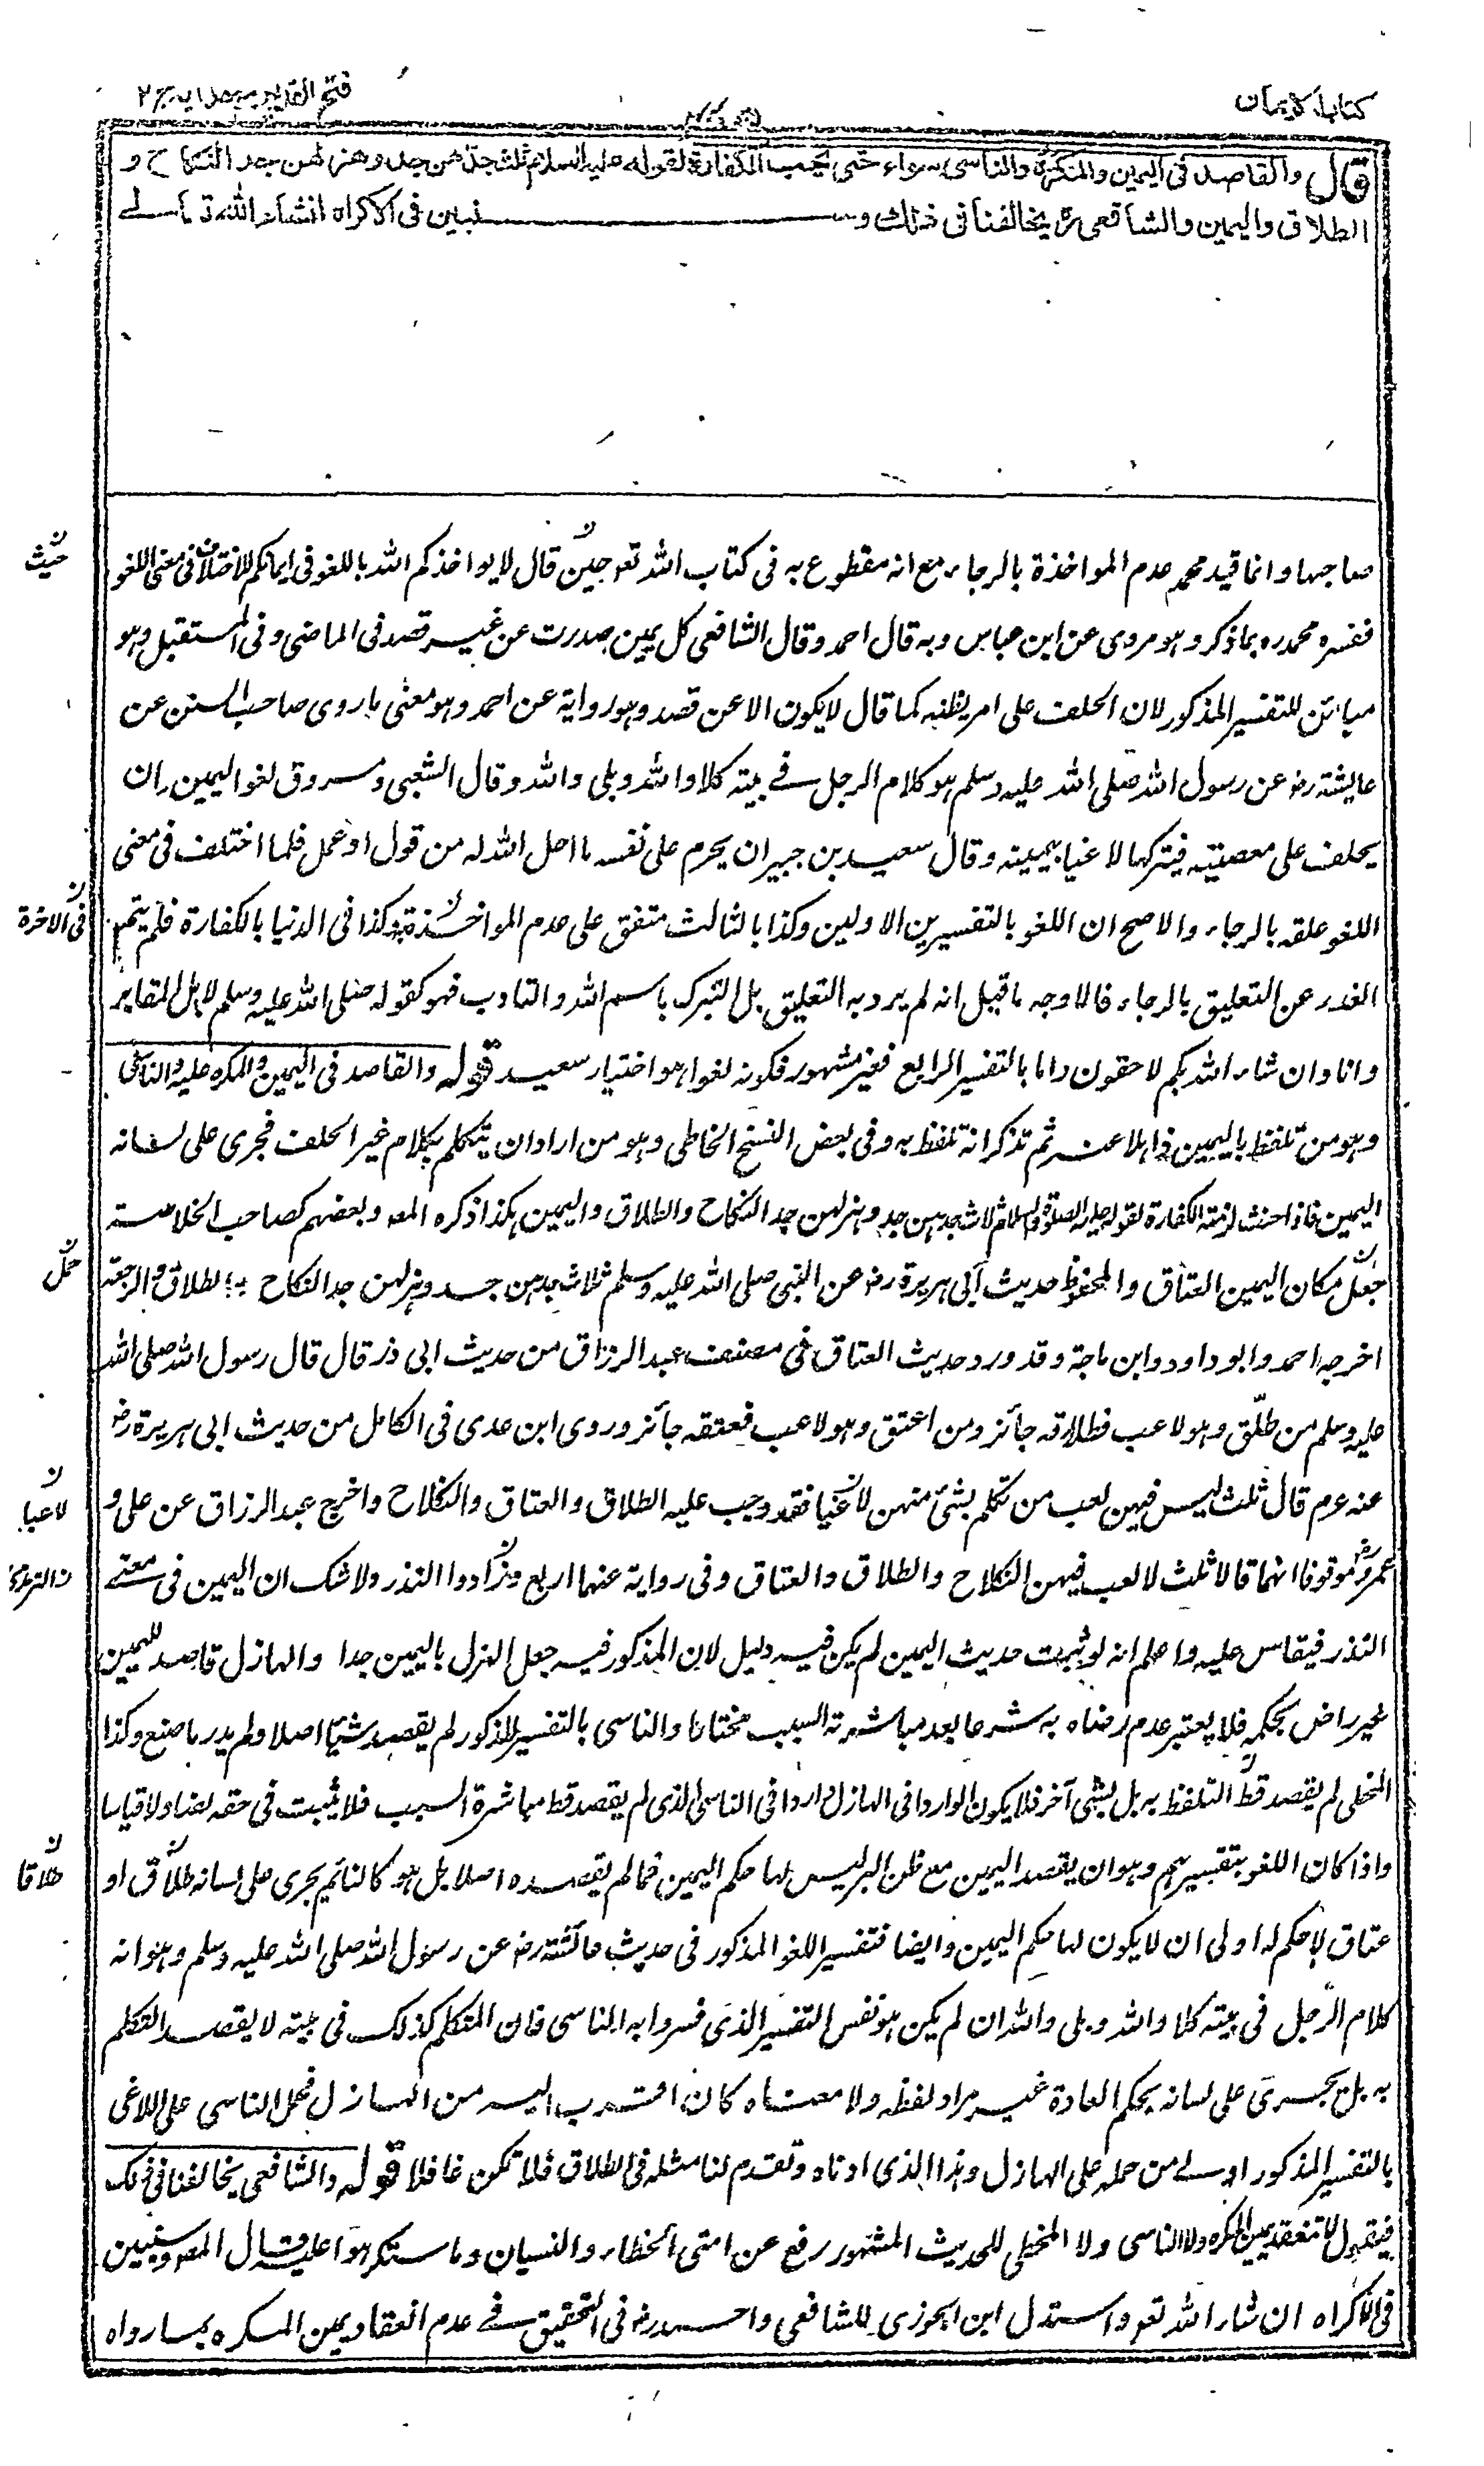 كتاب الايمان
فتح القدير مع هداية ج ٢
قال والقاصد فى اليمين والمكره والناسى سواء حتى يجب الكفارة لقوله عليه السلام ثلث جدهن جد وهزلهن جد النكاح و
الطلاق واليمين والشافعى رح يخالفنا فى ذلك وسنبين فى الاكراه انشاء الله تعالى
صاحبها وانما قيد محمد عدم المواخذة بالرجاء مع انه مقطوع به فى كتاب الله تعم حين قال لا يواخذكم الله باللغو فى ايمانكم للاختلاف فى معنى اللغو
حيث
ففسره محمد ره بما ذكر وهو مروى عن ابن عباس وبه قال احمد وقال الشافعى كل يمين صدرت عن غير قصد فى الماضى وفى المستقبل وهو
مبائن للتفسير المذكور لان الحلف على امر يظنه كما قال لا يكون الا عن قصد وهو رواية عن احمد وهو معنى ما روى صاحب السنن عن
عايشة رض عن رسول الله صلى الله عليه وسلم هو كلام الرجل فے بيته كلا والله وبلى والله وقال الشعبى ومسروق لغو اليمين ان
يحلف على معصية فيتركها لاغيا بيمينه وقال سعيد بن جبير ان يحرم على نفسه ما احل الله له من قول او عمل فلما اختلف فى معنى
اللغو علقه بالرجاء والاصح ان اللغو بالتفسيرين الاولين وكذا بالثالث متفق على عدم المواخذة به وكذا فى الدنيا بالكفارة فلم يتم
فى الاخرة
العذر عن التعليق بالرجاء فالاوجه ما قيل انه لم يرد به التعليق بل التبرك باسم الله والتادب فهو كقوله صلى الله عليه وسلم لاهل المقابر
وانا وان شاء الله بكم لاحقون واما بالتفسير الرابع فغير مشهور فكونه لغوا هو اختيار سعيد قوله والقاصد فى اليمين والمكره عليه والناسى
وهو من تلفظ باليمين ذاهلا عنه ثم تذكر انه تلفظ به وفى بعض النسخ الخاطى وهو من اراد ان يتكلم بكلام غير الحلف فجرى على لسانه
اليمين فاذا حنث لزمته الكفارة لقوله عليه الصلوة والسلام ثلاث جدهن جد وهزلهن جد النكاح والطلاق واليمين هكذا ذكره المصه وبعضهم كصاحب الخلاصة
جعل مكان اليمين العتاق والمحفوظ حديث أبى هريرة رض عن النبى صلى الله عليه وسلم ثلاث جدهن جد وهزلهن جد النكاح والطلاق والرجعة
اخرجه احمد وابو داود وابن ماجة وقد ورد حديث العتاق فى مصنف عبد الرزاق من حديث ابى ذر قال قال رسول الله صلى الله
عليه وسلم من طلّق وهو لاعب فطلاقه جائز ومن اعتق وهو لاعب فعتقه جائز وروى ابن عدى فى الكامل من حديث ابى هريرة رض
عنه عم قال ثلث ليس فيهن لعب من تكلم بشئ منهن لاغيا فقد وجب عليه الطلاق والعتاق والنكاح واخرج عبد الرزاق عن على و
لاعبا
عمر رض موقوفا انهما قالا ثلث لا لعب فيهن النكاح والطلاق والعتاق وفى رواية عنهما اربع وزادوا النذر ولا شك ان اليمين فى معنے
النذر فيقاس عليه واعلم انه لو ثبت حديث اليمين لم يكن فيه دليل لان المذكور فيه جعل الهزل باليمين جدا والهازل قاصد لليمين
غير راض بحكمه فلا يعتبر عدم رضاه به شرعا بعد مباشرته السبب مختارا والناسى بالتفسير المذكور لم يقصد شيئا اصلا ولم يدر ما صنع وكذا
المخطى لم يقصد قط التلفظ به بل بشئ آخر فلا يكون الوارد فى الهازل واردا فى الناسى الذى لم يقصد قط مباشرة السبب فلا يثبت فى حقه نصا ولا قياسا
واذا كان اللغو بتفسيرهم وهو ان يقصد اليمين مع ظن البر ليس لها حكم اليمين فما لم يقصده اصلا بل هو كالنائم يجرى على لسانه طلاق او
طلاقا
عتاق لا حكم له اولى ان لا يكون لها حكم اليمين وايضا فتفسير اللغو المذكور فى حديث عائشة رض عن رسول الله صلى الله عليه وسلم وهو انه
كلام الرجل فى بيته كلا والله وبلى والله ان لم يكن هو نفس التفسير الذى فسروا به الناسى فان المتكلم كذلك فى بيته لا يقصد التكلم
به بل يجرى على لسانه بحكم العادة غير مراد لفظه ولا معناه كان اقرب اليه من الهازل فحمل الناسى على اللاغى
بالتفسير المذكور اولے من حمله على الهازل وهذا الذى ادناه وتقدم لنا مثله فى الطلاق فلا تكن غافلا قوله والشافعى يخالفنا فى ذلك
فيقول لا تنعقد يمين المكره ولا الناسى ولا المخطى للحديث المشهور رفع عن امتى الخطاء والنسيان وما استكرهوا عليه قال المصه وسنبين
فى الاكراه ان شاء الله تعم واستدل ابن الجوزى للشافعى واحمد رض فى التحقيق فے عدم انعقاد يمين المكره بما رواه